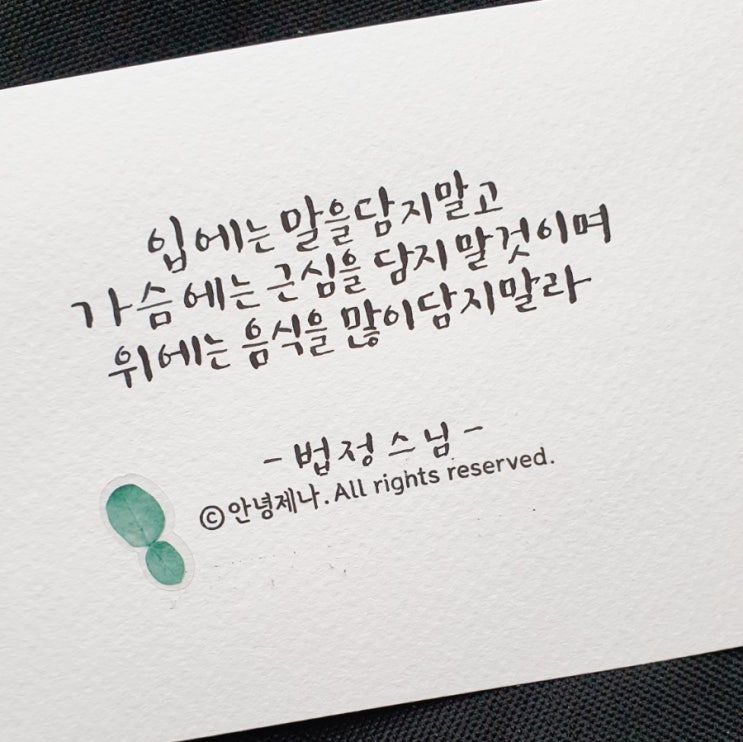 입에는 말을담지말고
가슴에는 근심을 담지 말것이며
위에는 음식을 많이담지말라
- 법정 스님 -
©안녕제나. All rights reserved.